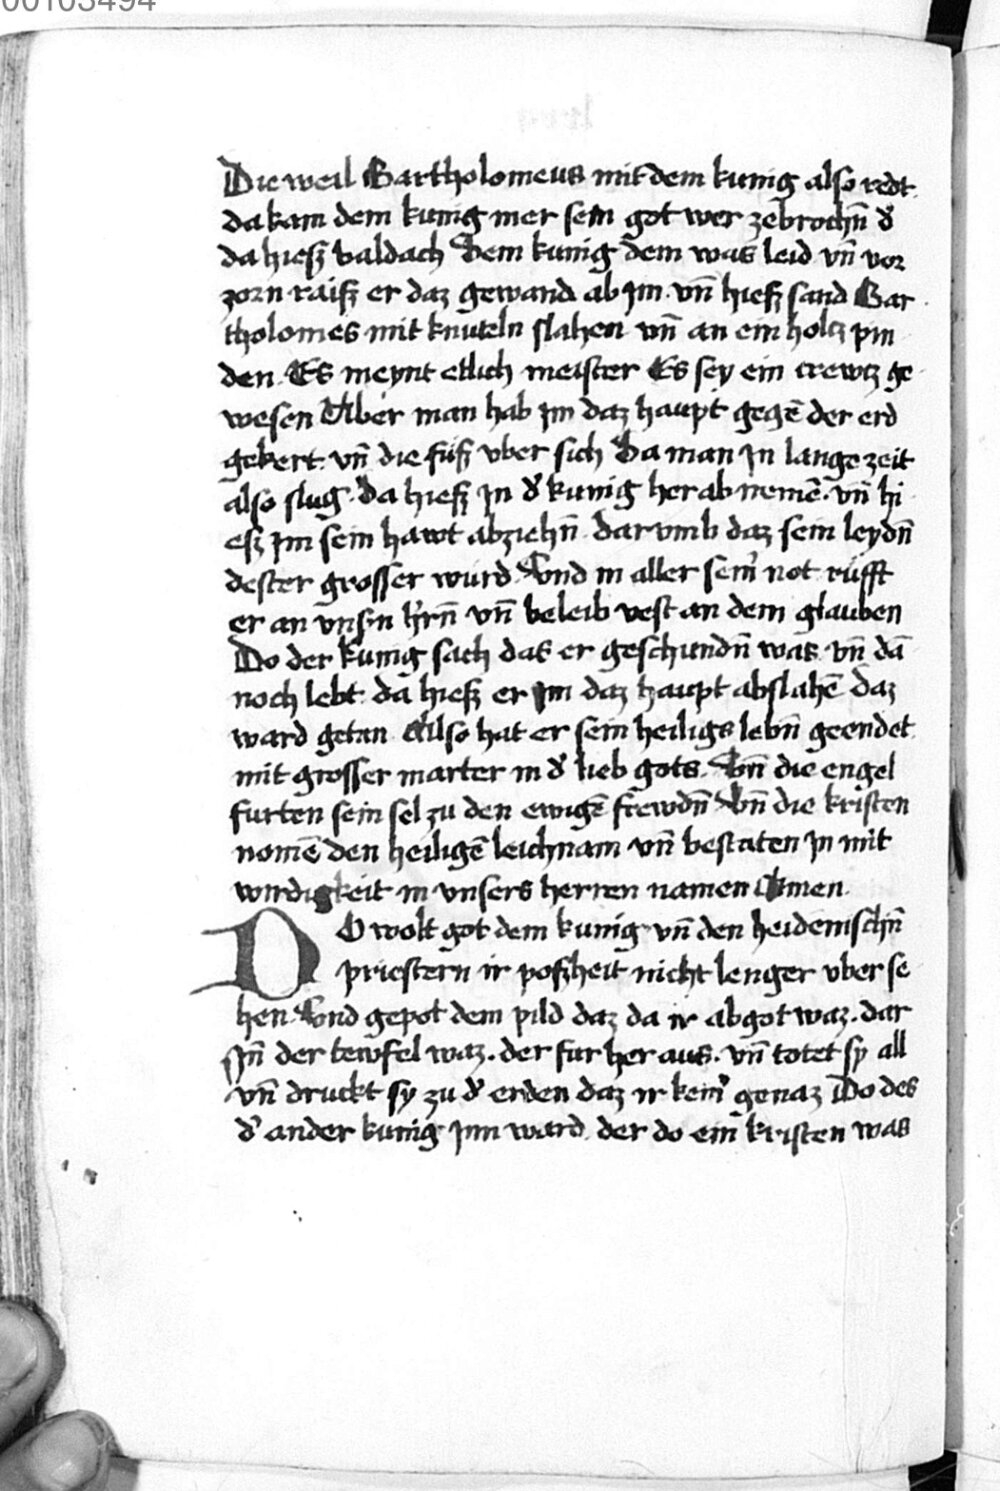 00103494
Die weil Bartholomeus mit dem kunig also redt.
da kam dem kunig mer sein got wer zebrochn̄ d͛
da hiesz baldach Dem kunig dem was leid vn̄ vor
zorn raisz er daz gewand ab jm. vn̄ hiesz sand Bar
tholomes mit knuteln slahen vn̄ an ein holcz pin
den. Es meynt etlich meister Es sey ein crewtz ge
wesen Aber man hab jm daz haupt gegē der erd
gekert. vn̄ die fusz vber sich Da man jn lange zeit
also slug. da hiesz jn d͛ kunig her ab nemē. vn̄ hi
esz jm sein hawt abziehn̄. dar vmb daz sein leydn̄
dester grosser wurd Vnd in aller sein͛ not rufft
er an vnsn̄ h͛rn̄ vn̄ beleib vest an dem glauben
Do der kunig sach das er geschundn̄ was. vn̄ dā
noch lebt. da hiesz er jm daz haupt abslahē daz
ward getan Also hat er sein heiligs lebn̄ geendet
mit grosser marter in d͛ lieb gots. Vn̄ die engel
furten sein sel zu den ewigē frewdn̄ Vn̄ die kristen
nomē den heiligē leichnam vn̄ bestaten jn mit
wirdigkeit in vnsers herren namen Amen.
DO wolt got dem kunig vn̄ den heidenischn̄
priestern ir poszheit nicht lenger vber se
hen. Vnd gepot dem pild daz da ir abgot waz. dar
jn̄ der tewfel waz. der fur her aus. vn̄ totet sy all
vn̄ druckt sy zu d͛ erden daz ir kein͛ genaz Do des
d͛ ander kunig jnn ward. der do ein kristen was